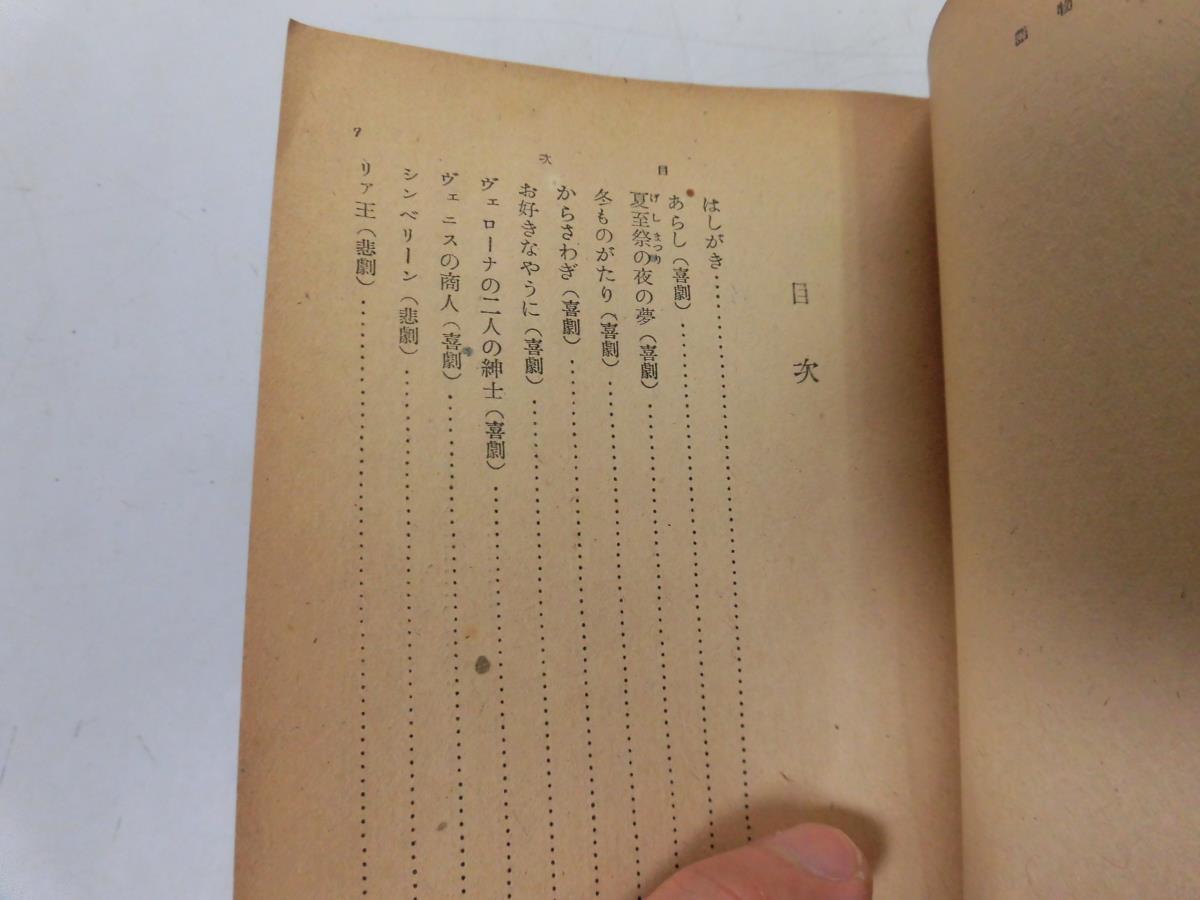 目次
はしがき……………………
あらし（喜劇）……………………
夏至祭の夜の夢（喜劇）……………………
げしまつり
冬ものがたり（喜劇）……………………
からさわぎ（喜劇）……………………
お好きなやうに（喜劇）……………………
ヴェローナの二人の紳士（喜劇）……………………
ヴェニスの商人（喜劇）……………………
シンベリーン（悲劇）……………………
リア王（悲劇）……………………
目次
7